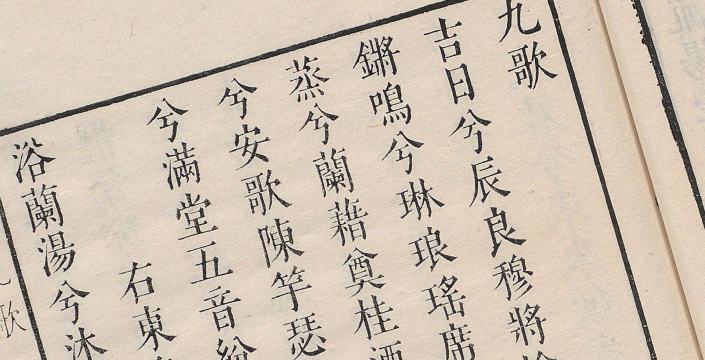 九歌
吉日兮辰良穆將
鏘鳴兮琳琅瑤席
蒸兮蘭藉奠桂酒
兮安歌陳竽瑟
兮滿堂五音紛
右東
浴蘭湯兮沐
九歌